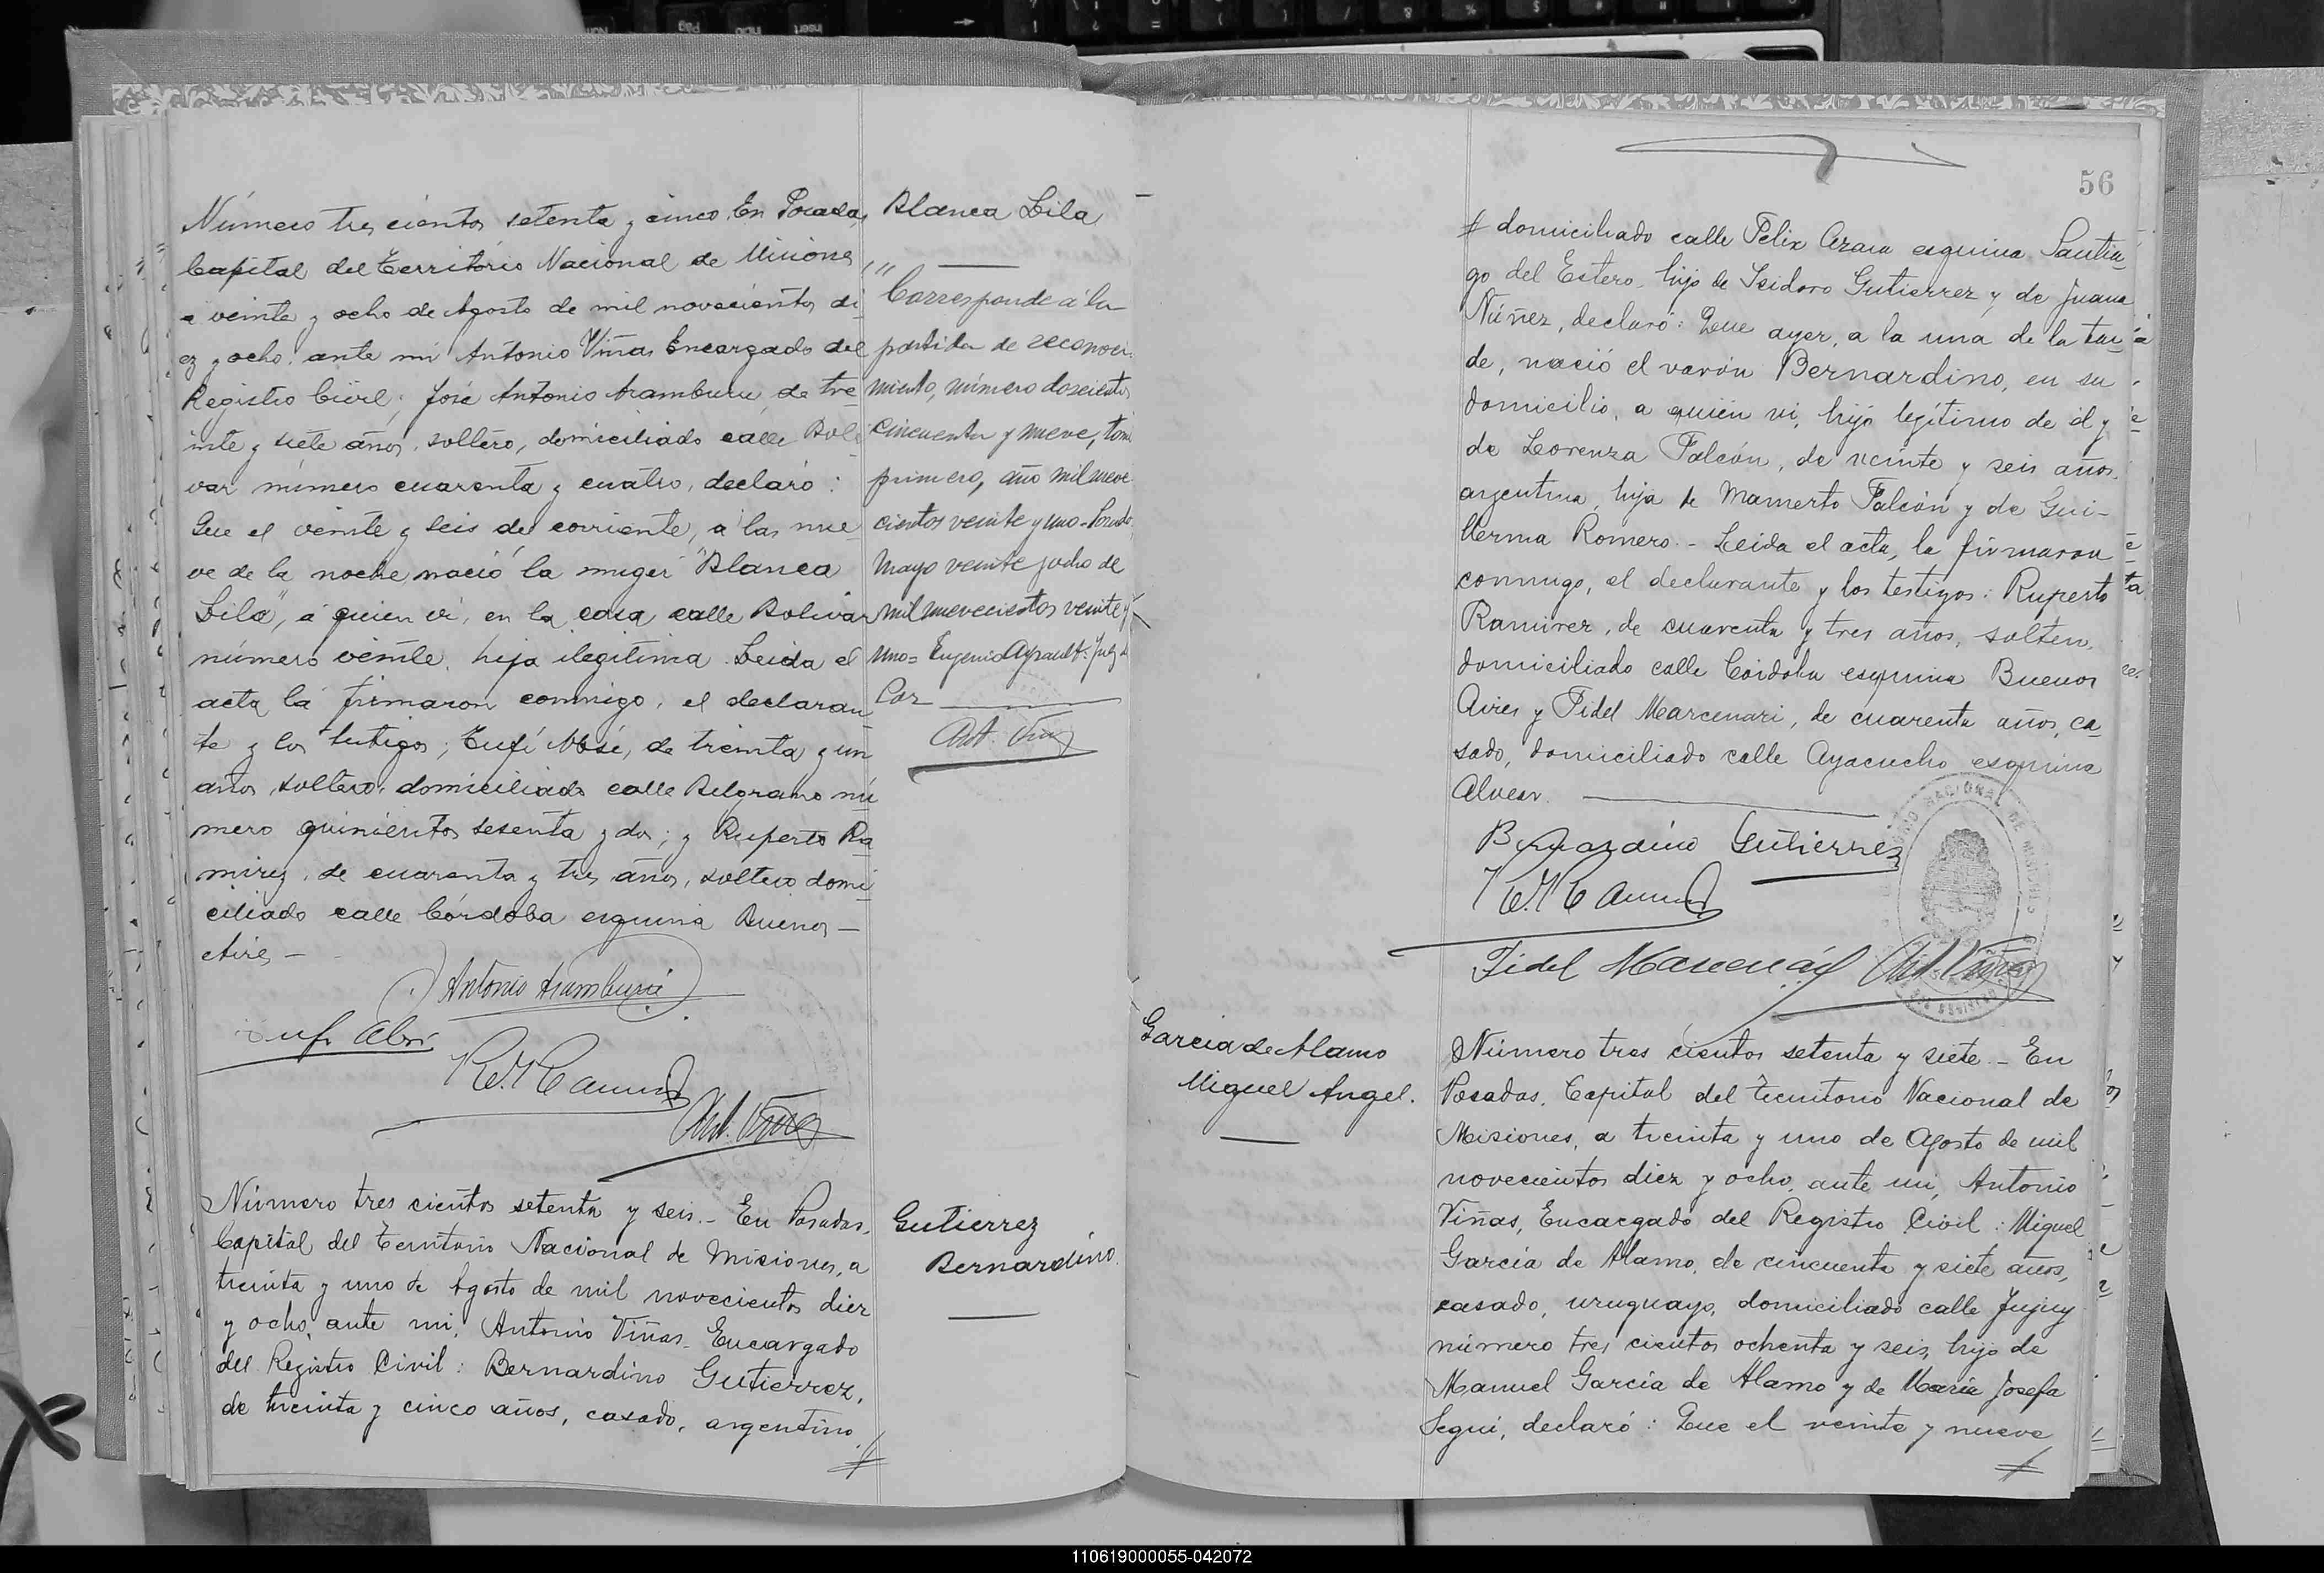 Número tres cientos setenta y cinco. En Posadas,
Capital del Territorio Nacional de Misiones
a veinte y ocho de Agosto de mil novecientos di
ez y ocho, ante mi Antonio Viñas Encargado del
Registro Civil; José Antonio Aramburu, de tre
inta y siete años, soltero, domiciliado calle Boli
var número cuarenta y cuatro, declaró:
Que el veinte y seis del corriente, a las nue
ve de la noche nació la muger "Blanca
Lila", a quien vi, en la casa calle Bolivar
número veinte, hija ilegitima. Leida el
acta la firmaron conmigo, el declaran
te y los testigos; Tufí Absi, de treinta y un
años, soltero, domiciliado calle Belgrano nú
mero quinientos sesenta y dos; y Ruperto Ra
mirez, de cuarenta y tres años, soltero domi
ciliado calle Córdoba esquina Buenos —
Aires —
Antonio Aramburú
Tufi Absi
R. Ramirez
Ant. Viñas
Blanca Lila
"Corresponde á la
partida de reconoci
miento, número doscientos
cincuenta y nueve, tomo
primero, año mil nove
cientos veinte y uno - Posadas,
Mayo veinte y ocho de
mil novecientos veinte y
uno = Eugenio Ayrault: Juez de
Paz
Ant. Viñas
Número tres cientos setenta y seis. - En Posadas,
Capital del Territorio Nacional de Misiones, a
treinta y uno de Agosto de mil novecientos diez
y ocho, ante mi, Antonio Viñas. Encargado
del Registro Civil: Bernardino Gutierrez,
de treinta y cinco años, casado, argentino,
#
Gutierrez
Bernardino.
56
# domiciliado calle Felix Azara esquina Santia
go del Estero, hijo de Isidoro Gutierrez y de Juana
Núñez, declaró: Que ayer, a la una de la tar
de, nació el varón Bernardino, en su
domicilio, a quién vi, hijo legítimo de él y
de Lorenza Falcón, de veinte y seis años,
argentina, hija de Mamerto Falcón y de Gui-
llerma Romero. - Leida el acta, la firmaron
conmigo, el declarante y los testigos: Ruperto
Ramirez, de cuarenta y tres años, soltero,
domiciliado calle Córdoba esquina Buenos
Aires y Fidel Marcenari, de cuarenta años, ca
sado, domiciliado calle Ayacucho esquina
Alvear.
Bernardino Gutierrez
R. Ramirez
Fidel Marcenari Ant. Viñas
García de Alamo
Miguel Angel.
Número tres cientos setenta y siete. - En
Posadas, Capital del Territorio Nacional de
Misiones, a treinta y uno de Agosto de mil
novecientos diez y ocho, ante mi, Antonio
Viñas, Encargado del Registro Civil: Miguel
García de Alamo, de cincuenta y siete años,
casado, uruguayo, domiciliado calle Jujuy
número tres cientos ochenta y seis, hijo de
Manuel García de Alamo y de María Josefa
Seguí, declaró: Que el veinte y nueve
#
110619000055-042072